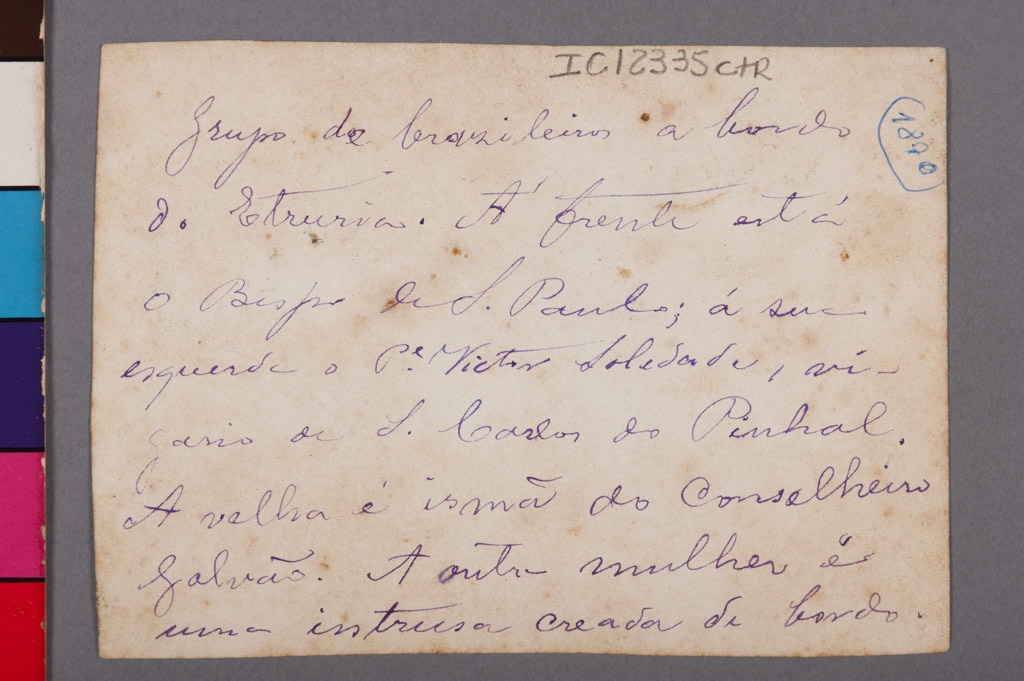 IC12335ctR
1870
Grupo de brazileiros a bordo
do Etruria. Á frente está
o Bispo de S. Paulo; á sua
esquerda o Pe. Victor Soledade, vi-
gario de S. Carlos do Pinhal.
A velha é irmã do Conselheiro
Galvão. A outra mulher é
uma intrusa creada de bordo.